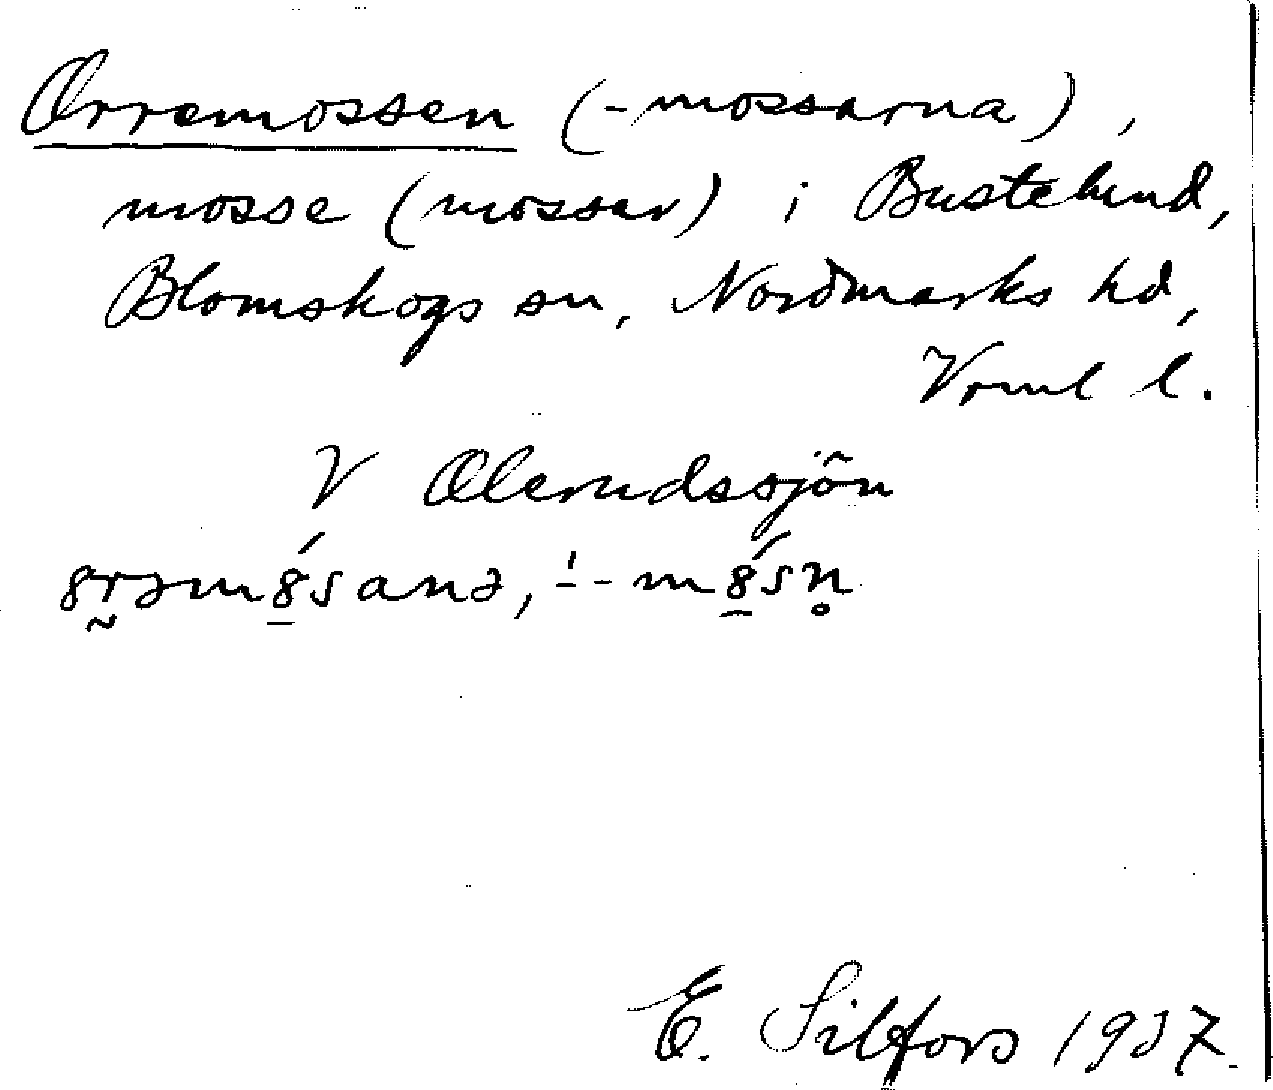 Orremossen (-mossarna),
mosse (mossar) i Bustelund,
Blomskogs sn, Nordmarks hd,
Vrml l.
V Olerudssjön
8r̰əm8̱́sanə, -́-m8̱́sn̥
E. Silfors 1937.